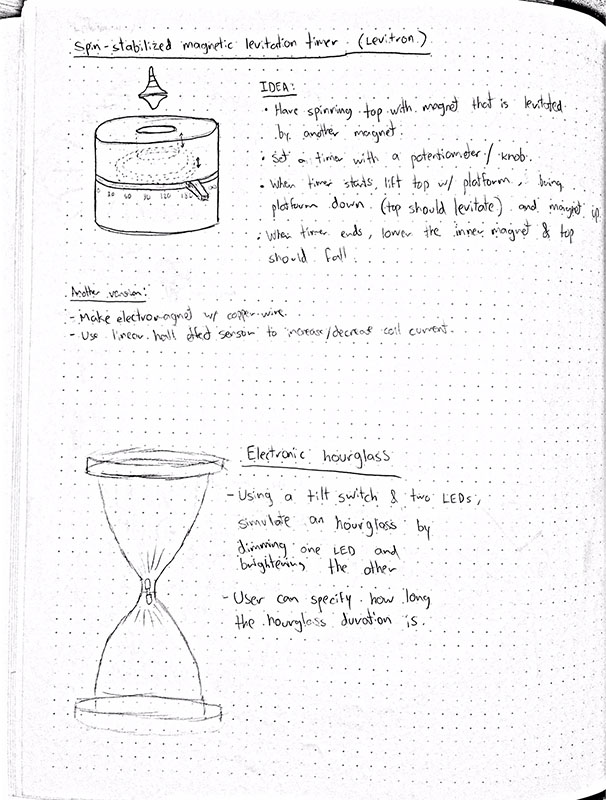 Spin-stabilized magnetic levitation timer (Levitron)
IDEA:
• Have spinning top with magnet that is levitated
by another magnet.
• Set a timer with a potentiometer / knob.
• When timer starts, lift top w/ platform, bring
platform down (top should levitate) and magnet up.
• When timer ends, lower the inner magnet & top
should fall.
0 30 60 90 120
Another version:
- Make electromagnet w/ copper wire.
- Use linear hall effect sensor to increase/decrease coil current.
Electronic hourglass
- Using a tilt switch & two LEDs,
simulate an hourglass by
dimming one LED and
brightening the other
- User can specify how long
the hourglass duration is.